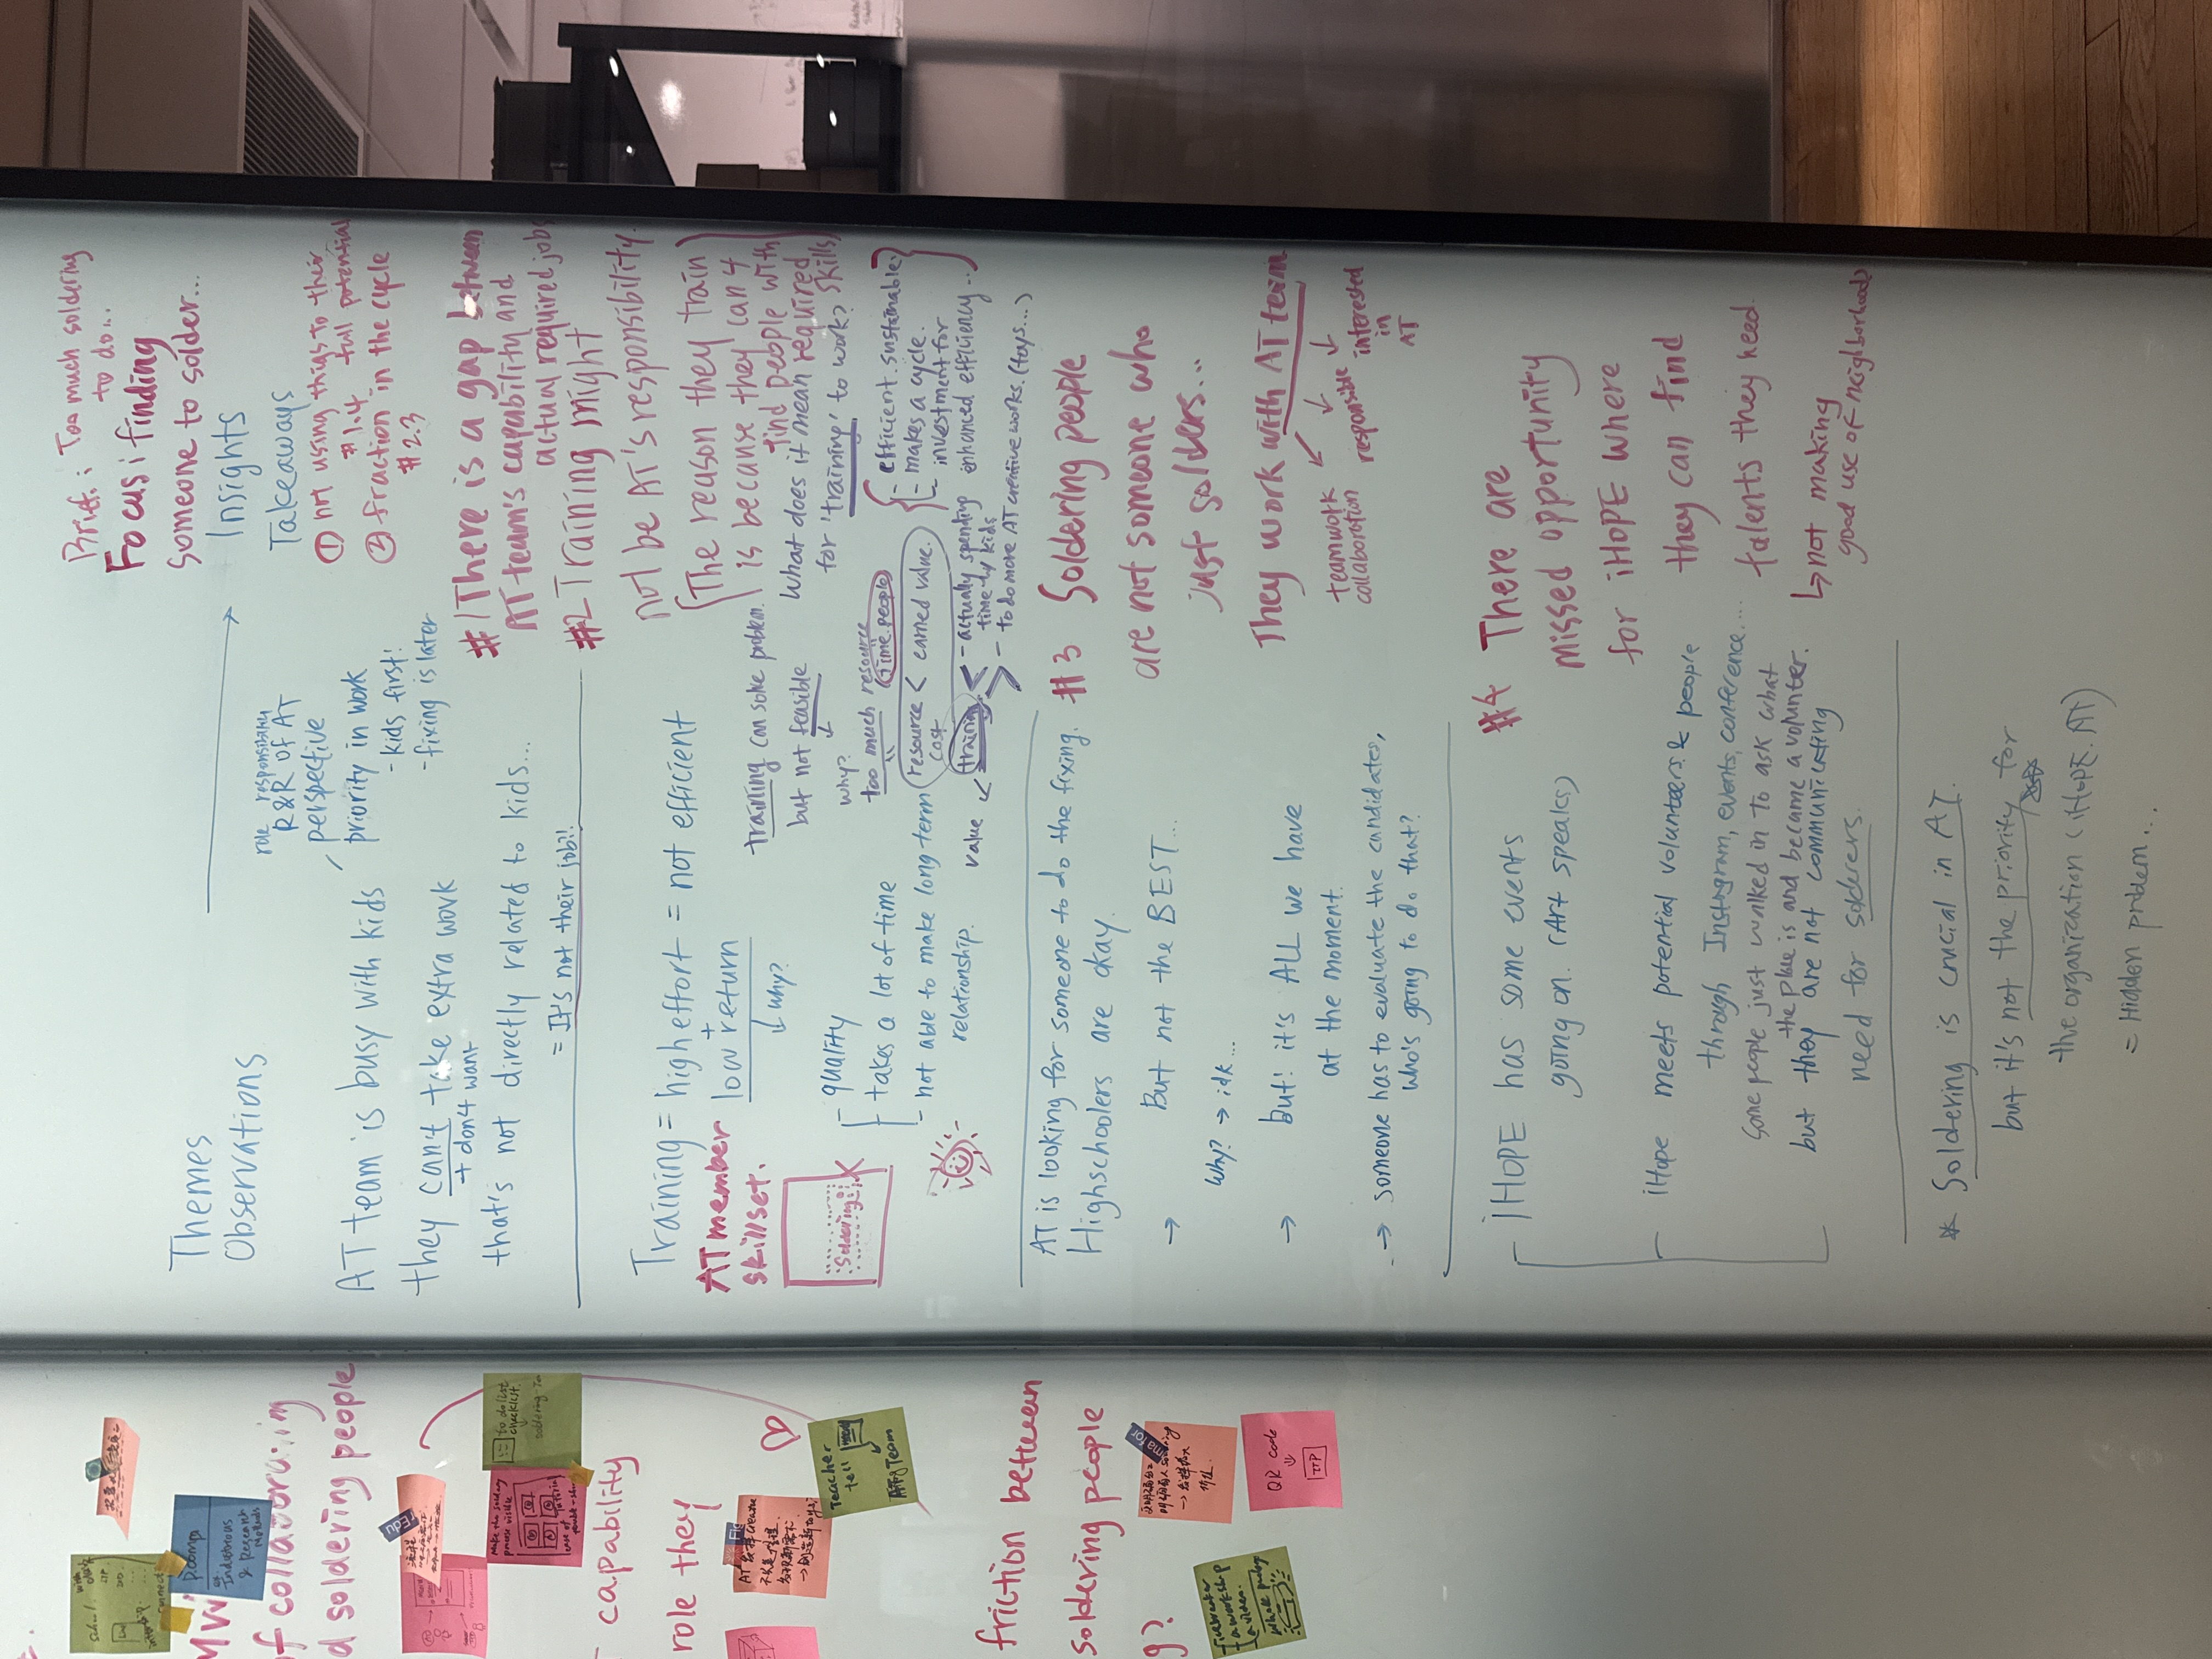 Brief: Too much soldering
to do...
Focus: finding
someone to solder...
Themes
Observations
Insights
Takeaways
① not using things to their
#1.4 full potential
② fraction in the cycle
#2.3
role responsibility
R&R of AT
perspective
priority in work
- kids first!
- fixing is later
AT team is busy with kids
they can't take extra work
+ don4 want
that's not directly related to kids...
= It's not their job!!
#1 There is a gap between
AT team's capability and
actual required jobs
#2 Training might
not be AT's responsibility.
(The reason they train)
is because they can 4
find people with
required
skills)
Training = high effort = not efficient
+
low return
↓ why?
- quality
takes a lot of time
- not able to make long term
relationship.
AT member
skillset.
soldering
training can solve problem.
but not feasible
↓
why?
too much resource
(time.people)
resource < earned value.
cost
value ← training
< - actually spending
time w/ kids
> - to do more AT creative works. (toys...)
What does it mean
for 'training' to work?
efficient. sustainable.
- makes a cycle.
= investment for
enhanced efficiency..
AT is looking for someone to do the fixing.
Highschoolers are okay.
→ But not the BEST...
why? → idk...
→ but! it's ALL we have
at the moment.
→ someone has to evaluate the candidates,
who's going to do that?
#3 Soldering people
are not someone who
just solders...
They work with AT team
teamwork
collaboration
responsible
interested
in
AT
iHOPE has some events
going on. (Art speaks)
iHope meets potential volunteers & people
through Instagram, events, conference...
some people just walked in to ask what
the place is and became a volunteer.
but they are not communicating
need for solderers.
#4 There are
missed opportunity
for iHOPE where
they can find
talents they need.
↳ not making
good use of neighborhoods
* Soldering is crucial in AT.
but it's not the priority for
the organization (iHOPE. AT)
= Hidden problem...
of collaborating
d soldering people
capability
role they
friction between
soldering people
g?
to do list
checklist.
soldering-
Make the soldering
process visible
Teacher
tell
Team
QR code
↓
a workshop
a video.
Industrious
& Research